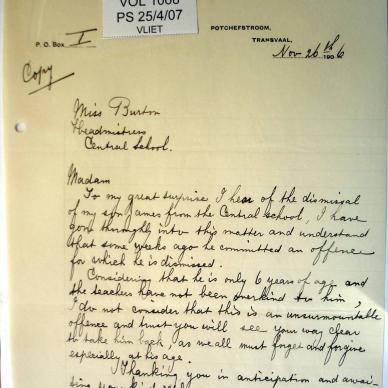 VOL 1068
PS 25/4/07
VLIET
POTCHEFSTROOM,
P. O. Box I TRANSVAAL,
Nov 26th 1906
Copy
Miss Burton
Headmistress
Central School.
Madam
To my great surprise I hear of the dismissal
of my son James from the Central school, I have
gone throughly into this matter and understand
that some weeks ago he committed an offence
for which he is dismissed.
Considering that he is only 6 years of age and
the teachers have not been overkind to him,
I do not consider that this is an unsurmountable
offence and trust you will see your way clear
to take him back, as we all must forget and forgive
especially at his age.
Thanking you in anticipation and awai
ting your kind